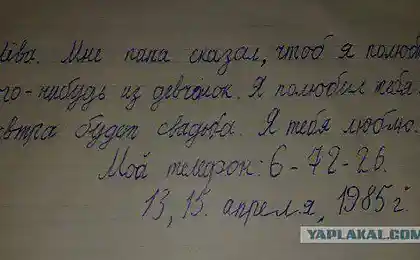 Лёва. Мне папа сказал, чтоб я полюб
го-нибудь из девчонок. Я полюбил тебя.
автра будет свадьба. Я тебя люблю.
Мой телефон: 6-72-26.
13, 15. апреля, 1985 г.
YAPLAKAL.COM